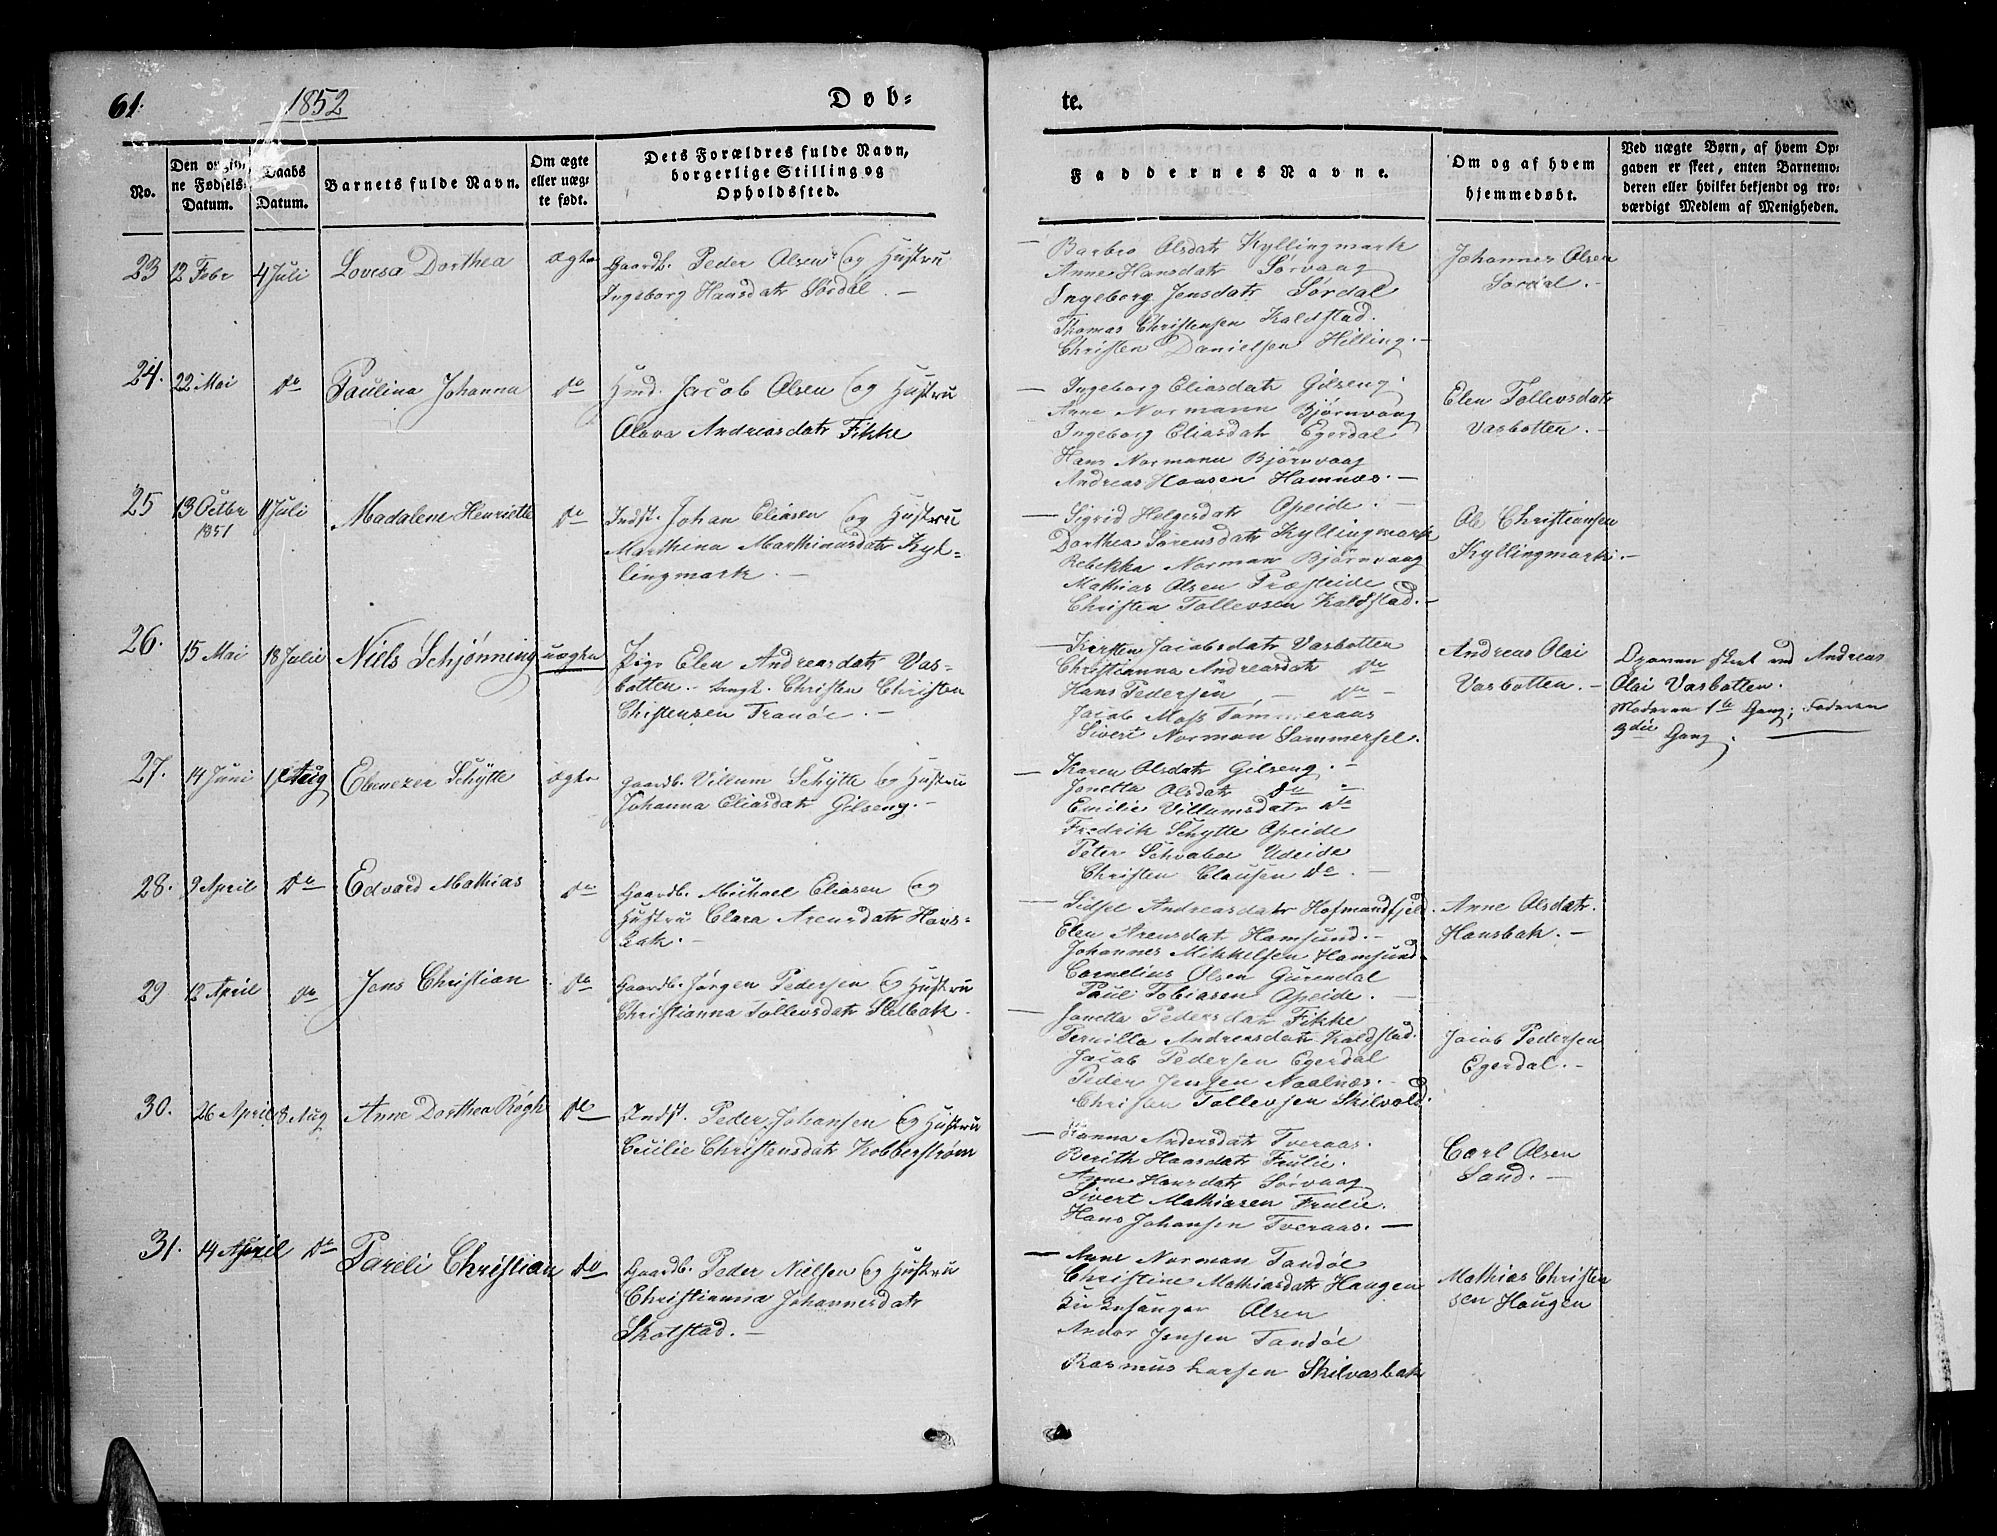 61.
1852
Døb-
te.
No.
Den opgiv-
ne Fødsels-
Datum.
Daabs
Datum.
Barnets fulde Navn.
Om ægte
eller uæg-
te født.
Dets Forældres fulde Navn,
borgerlige Stilling og
Opholdssted.
Faddernes Navne.
Om og af hvem
hjemmedøbt.
Ved uægte Børn, af hvem Op-
gaven er skeet, enten Barnemo-
deren eller hvilket bekjendt og tro-
værdigt Medlem af Menigheden.
23 12 Febr 4 Juli Lovisa Dorthea ægte
Gaardb. Peder Olsen og Hustru
Ingeborg Hansdatr Sørdal. –
– Barbro Olsdatr Kyllingmark
Anne Hansdatr Sørvaag
Ingeborg Jensdatr Sørdal
Thomas Christensen Kaldstad.
Christen Danielsen Hilling. –
Johannes Olsen
Sørdal. –
24. 22 Mai do Paulina Johanna do
Hmd. Jacob Olsen og Hustru
Olava Andreasdatr Fikke
– Ingeborg Eliasdatr Gilseng.
Anne Normann Bjørnvaag
Ingeborg Eliasdatr Egerdal
Hans Normann Bjørnvaag
Andreas Hansen Hamnæs. –
Elen Tollevsdatr
Vasbotten. –
25 13 Octbr 11 Juli Madalene Henriette do
1851
Indst. Johan Eliasen og Hustru
Marthina Marthinusdatr Kyl-
lingmark. –
– Sigrid Helgesdatr Opeide. –
Dorthea Sørensdatr Kyllingmark
Rebekka Norman Bjørnvaag
Mathias Olsen Præsteide
Christen Tollevsen Kaldstad. –
Ole Christiansen
Kyllingmark. –
26. 15 Mai 18 Julii Niels Schjønning uægte
Pige Elen Andreasdatr Vas-
botten. – Ungk. Christen Christen
Christensen Tranöe. –
– Kirsten Jacobsdatr Vasbotten
Christianna Andreasdatr do
Hans Pedersen – do –
Jacob Moss Tømmeraas
Sivert Norman Sommersel.
Andreas Olai
Vasbotten. –
Opgaven skeet ved Andreas
Olai Vasbotten.
Moderen 1te Gang; Faderen
3die Gang.
27. 14 Juni 1 Aug Ebenezer Schytte ægte
Gaardb. Villum Schytte og Hustru
Johanna Eliasdatr Gilseng. –
– Karen Olsdatr Gilseng. –
Jonetta Olsdatr do –
Emilie Villumsdatr do
Fredrik Schytte Opeide
Peter Schvabe Udeide
Christen Clausen do. –
28. 9 April do Edvard Mathias do
Gaardb. Michael Eliasen og
Hustru Clara Arensdatr Hans-
bak. –
– Sidsel Andreasdatr Hofmandsfjeld.
Elen Arensdatr Hamsund. –
Johannes Mikkelsen Hamsund –
Cornelius Olsen Gurendal
Paul Tobiasen Opeide. –
Anne Olsdatr.
Hansbak. –
29 12 April do Jens Christian do
Gaardb. Jørgen Pedersen og Hustru
Christianna Tollevsdatr Sletbak.
– Jonetta Pedersdatr Fikke
Pernilla Andreasdatr Kaldstad.
Jacob Pedersen Egerdal
Peder Jensen Naalnæs. –
Christen Tollevsen Skilvold.
Jacob Pedersen
Egerdal. –
30. 26 April 8 Aug Anne Dorthea Røgh do
Indst. Peder Johansen og Hustru
Cecilie Christensdatr Kobberstrøm
– Hanna Andersdatr Tveraas.
Berith Hansdatr Frulie.
Anne Hansdatr Sørvaag
Sivert Mathiasen Frulie.
Hans Johansen Tveraas. –
Carl Olsen
Sand. –
31. 14 April do Pareli Christian do
Gaardb. Peder Nielsen og Hustru
Christianna Johannesdatr
Skotstad. –
– Anne Norman Tandöe
Christine Mathiasdatr Haugen
Olsen
Andor Jensen Tandöe
Rasmus Larsen Skilvasbak
Mathias Christen
sen Haugen